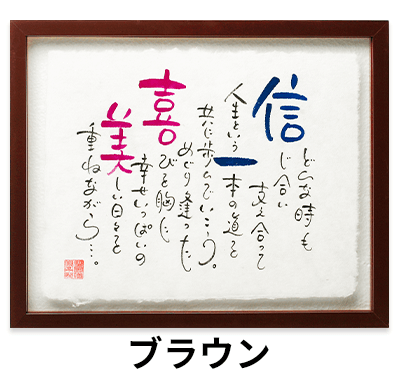 どんな時も
信じ合い
支え合って
人生という
一本の道を
共に歩んでいこう。
めぐり逢った
喜びを胸に
幸せいっぱいの
美しい日々を
重ねながら…。
ブラウン